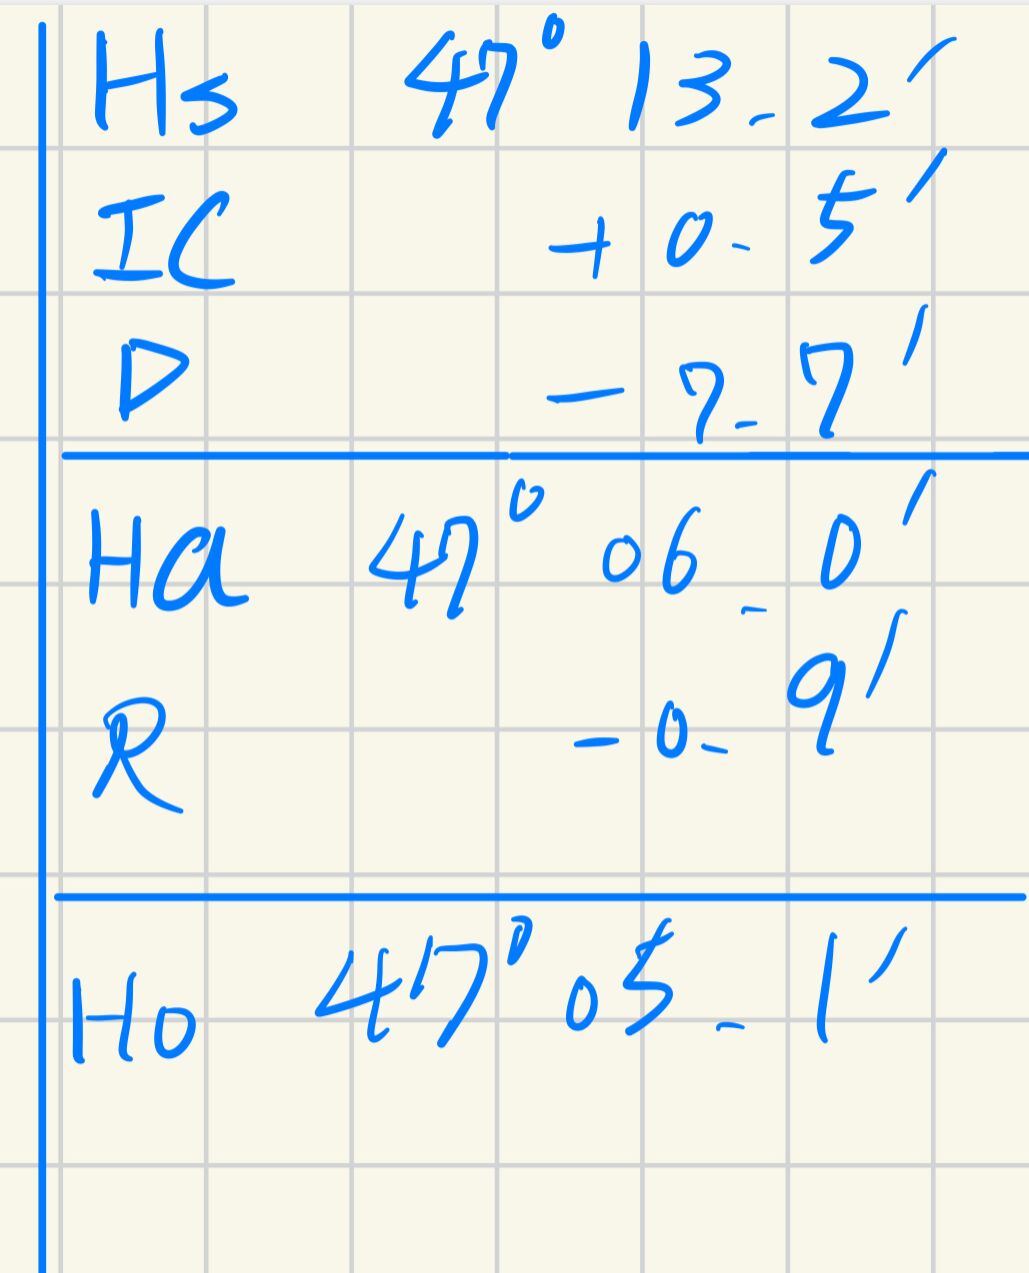 Hs 47° 13.2'
IC + 0.5'
D - 7.7'
Ha 47° 06.0'
R - 0.9'
Ho 47° 05.1'